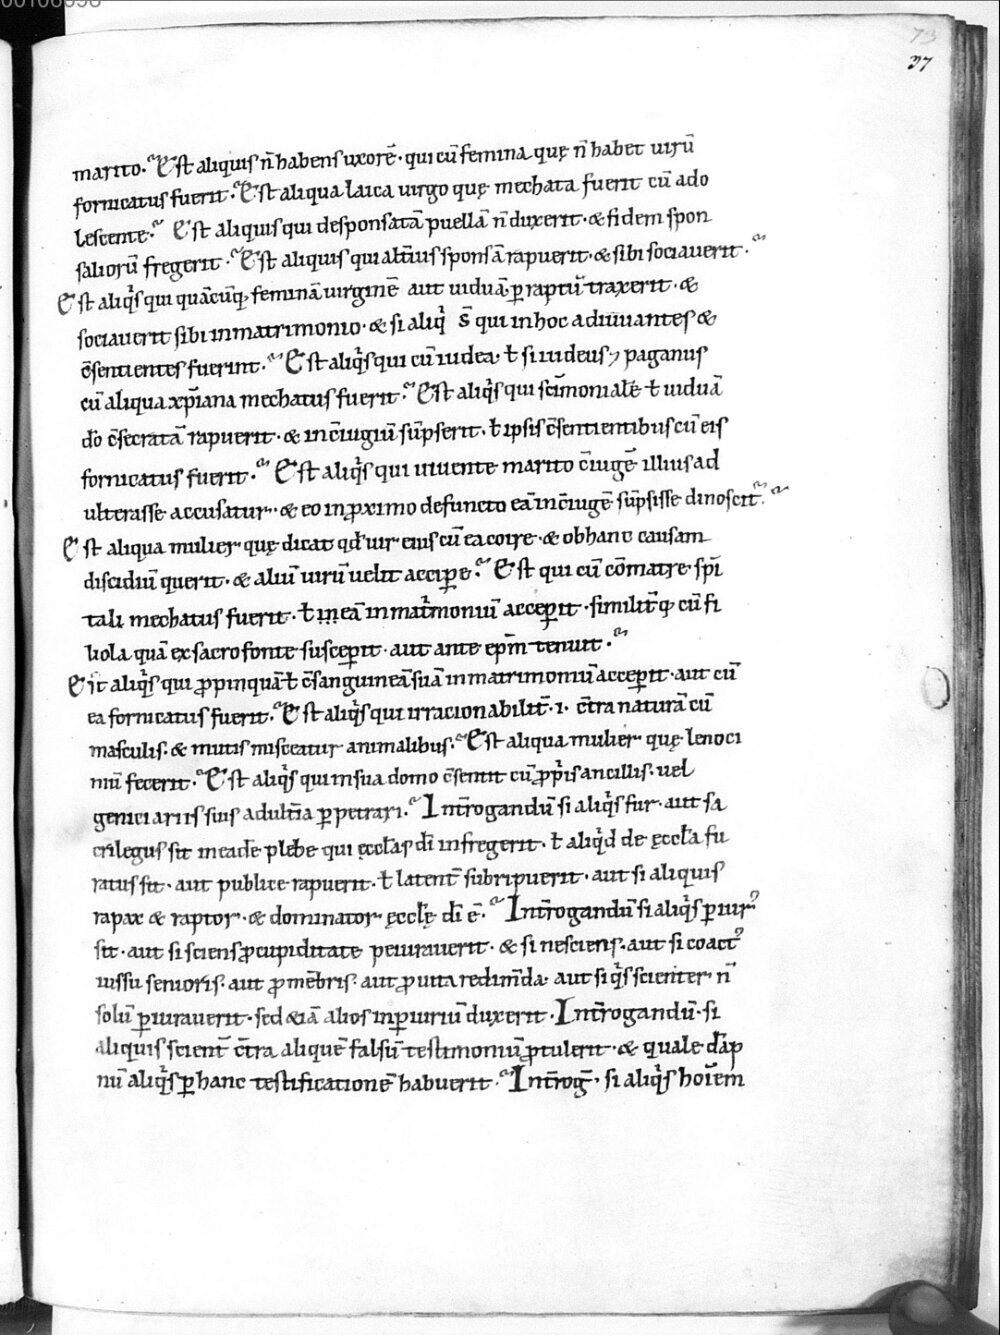 00106098
73
37
marito. Est aliquis n̄ habens uxorē· qui cū femina quę n̄ habet uirū
fornicatus fuerit. Est aliqua laica uirgo quę mechata fuerit cū ado
lescente. Est aliquis qui desponsatā puellā n̄ duxerit· & fidem spon
saliorū fregerit. Est aliquis qui alt̄ius sponsā rapuerit· & sibi sociauerit.
Est aliq̉s qui quācūq; feminā uirginē aut uiduā ꝑ raptū traxerit· &
sociauerit sibi in matrimonio· & si aliq̉ s̄ qui in hoc adiuuantes &
c̄sentientes fuerint. Est aliq̉s qui cū iudea· ł si iudeus ⁊ paganus
cū aliqua xp̄iana mechatus fuerit. Est aliq̉s qui sc̄imonialē ł uiduā
dō c̄secratā rapuerit· & in c̄iugiū sūpserit· ł ipsis c̄sentientibus cū eis
fornicatus fuerit. Est aliq̉s qui uiuente marito c̄iugē illius ad
ulterasse accusatur· & eo in ꝓximo defuncto eā in c̄iugē sūpsisse dinoscit̄.
Est aliqua mulier quę dicat qđ uir eius cū ea coire· & ob hanc causam
discidiū querit· & aliū uirū uelit acciꝑe. Est qui cū cōmatre sp̄i
tali mechatus fuerit· ł in eā in mat̉moniū acceꝑit· similit̄ q; cū fi
liola quā ex sacro fonte susceꝑit· aut ante ep̄m tenuit.
Est aliq̉s qui ꝓpinquā ł c̄sanguineā suā in matrimoniū acceꝑit· aut cū
ea fornicatus fuerit. Est aliq̉s qui irracionabilit̄· i· c̄tra naturā cū
masculis· & mutis misceatur animalibus. Est aliqua mulier quę lenoci
niū fecerit. Est aliq̉s qui in sua domo c̄sentit cū ꝓp̉is ancillis· uel
geniciariis suis adult̄ia ꝑpetrari. Int̄rogandū si aliq̉s fur· aut sa
crilegus sit in eadē plebe qui ęccl̄as dī infregerit· ł aliq̉d de ęccl̄a fu
ratus sit· aut publice rapuerit· ł latent̄ subripuerit· aut si aliquis
rapax & raptor· & dominator ęccl̄ę dī ē. Int̄rogandū si aliq̉s ꝑiur᾽
sit· aut si sciens ꝓ cupiditate peiurauerit· & si nesciens· aut si coact᾽
iussu senioris· aut ꝓ mēbris· aut ꝓ uita redimēda· aut si q̉s scienter n̄
solū ꝑiurauerit· sed &iā alios in ꝑiuriū duxerit· Int̄rogandū· si
aliquis scient̄ c̄tra aliquē falsū testimoniū ꝓtulerit· & quale dāp
nū aliq̉s ꝑ hanc testificationē habuerit. Int̄roḡ· si aliq̉s hoīem